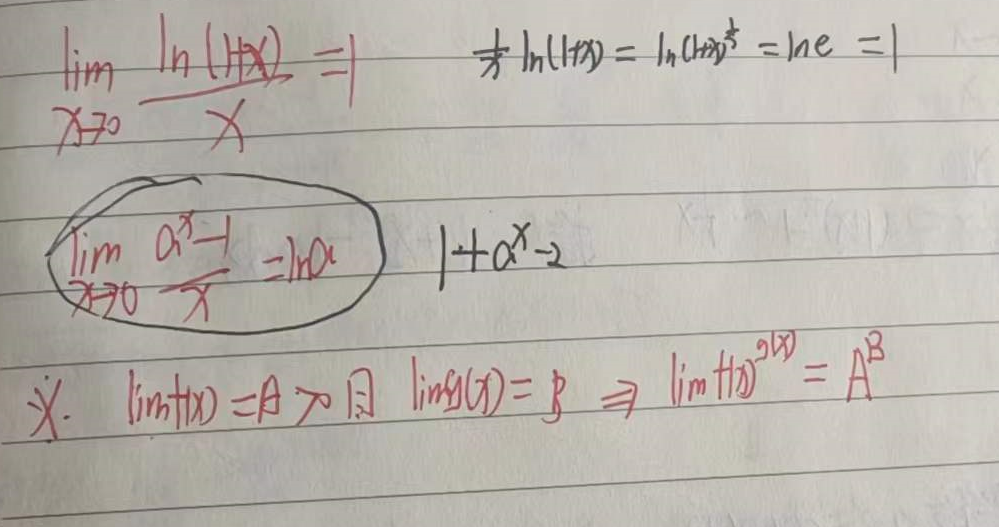 lim_{x→0} ln(1+x)/x = 1    1/x ln(1+x) = ln(1+x)^{1/x} = ln e = 1
lim_{x→0} (a^x-1)/x = ln a    1+a^x-2
※. lim f(x) = A > 且 lim g(x) = B ⇒ lim f(x)^{g(x)} = A^B